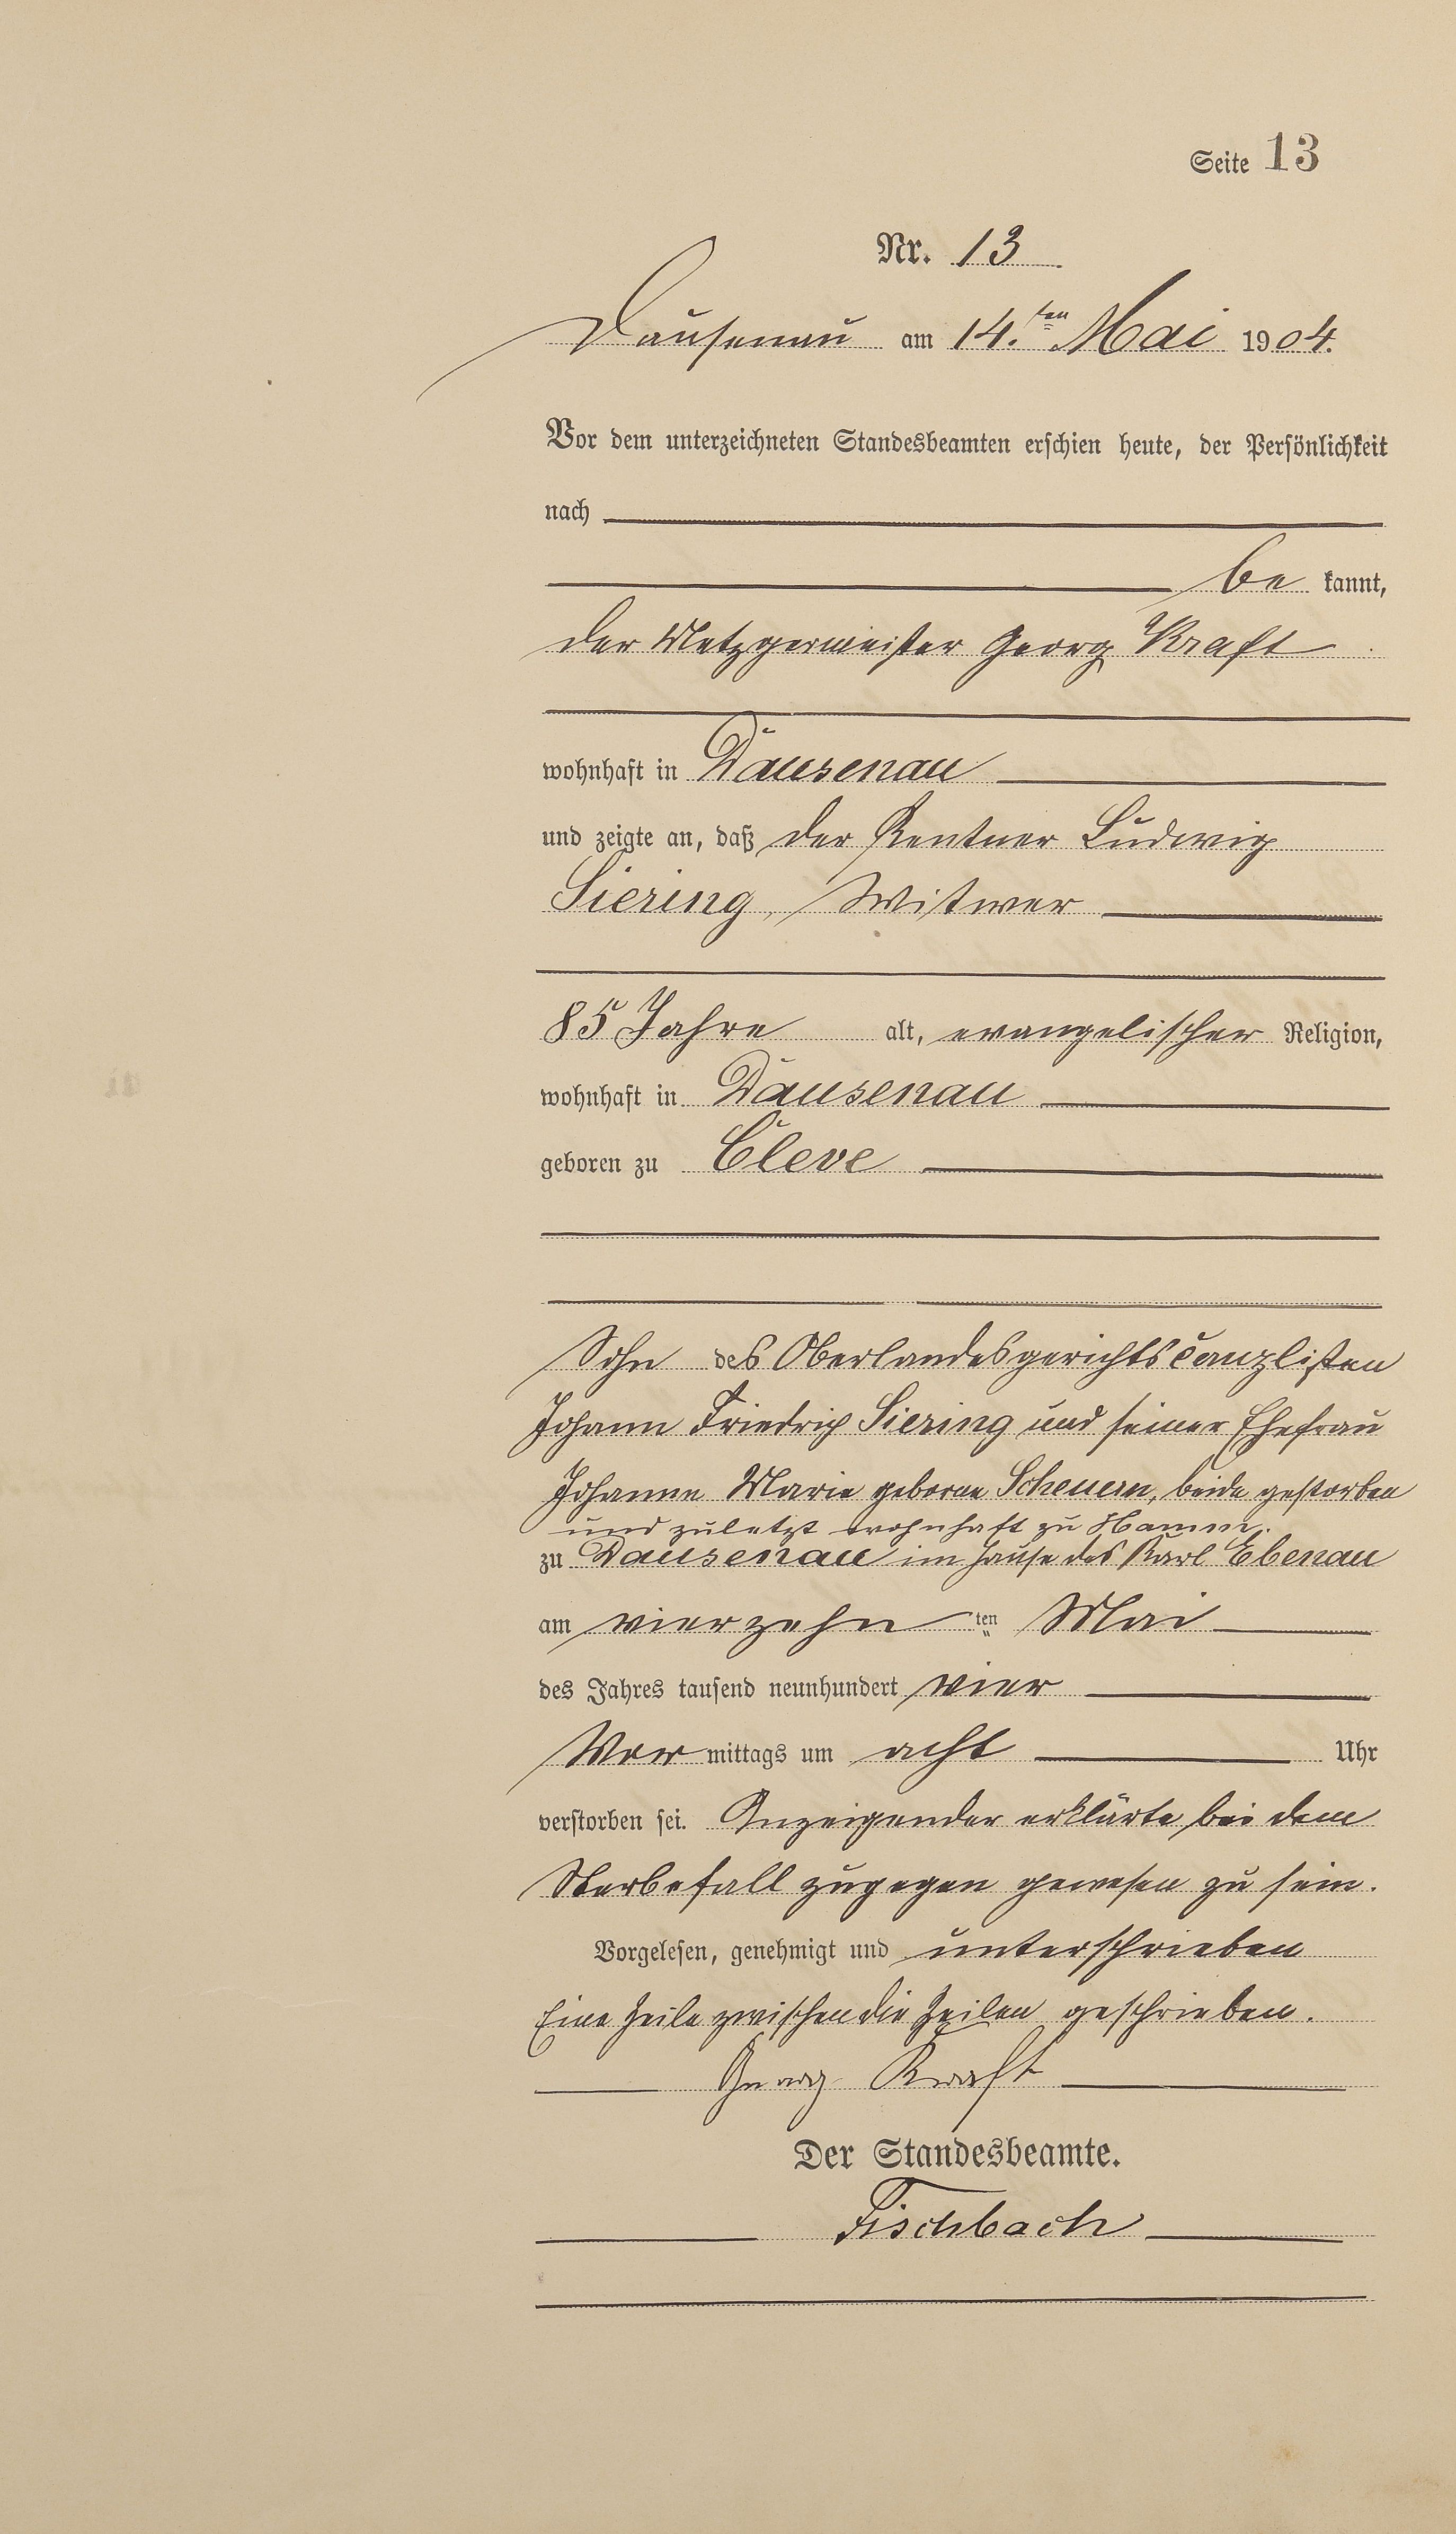 Seite 13
Nr. 13
Dausenau am 14.ten Mai 1904.
Vor dem unterzeichneten Standesbeamten erschien heute, der Persönlichkeit
nach
be kannt,
der Metzgermeister Georg Kraft
wohnhaft in Dausenau
und zeigte an, daß der Rentner Ludwig
Siering, Witwer
85 Jahre alt, evangelischer Religion,
wohnhaft in Dausenau
geboren zu Cleve
Sohn des Oberlandesgerichtscanzlisten
Johann Friedrich Siering und seiner Ehefrau
Johanne Marie geborne Scheuern, beide gestorben
und zuletzt wohnhaft zu Hamm.
zu Dausenau im Hause des Karl Ebenau
am vierzehn ten Mai
des Jahres tausend neunhundert vier
Vor mittags um acht Uhr
verstorben sei. Anzeigender erklärte bei dem
Sterbefall zugegen gewesen zu sein.
Vorgelesen, genehmigt und unterschrieben
Eine Zeile zwischen die Zeilen geschrieben.
Georg Kraft
Der Standesbeamte.
Fischbach